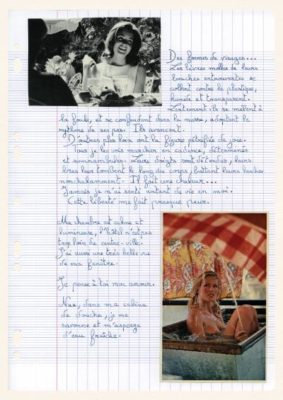 Des formes de visages...
Les lèvres molles de leurs
bouches entrouvertes se
collent contre le plastique,
humide et transparent.
Lentement ils se mêlent à
la foule, et se confondent dans la masse, adoptant le
rythme de ses pas. Ils avancent.
D'autres plus loin ont la figure pétrifiée de joie.
Tous je les vois marcher en cadence, déterminés
et
Leurs doigts sont détendus, leurs
bras leur tombent le long du corps, battant leurs hanches
nonchalamment. Il fait une chaleur...
Jamais je n'ai senti autant de vie en moi.
Cette liberté me fait presque peur.
Ma chambre est calme et
lumineuse, l'hôtel n'est pas
trop loin du centre-ville.
J'ai aussi une très belle vue
de ma fenêtre.
Je pense à toi mon amour.
Nue, dans ma cabine
de douche, je me
savonne et m'asperge
d'eau fraîche.